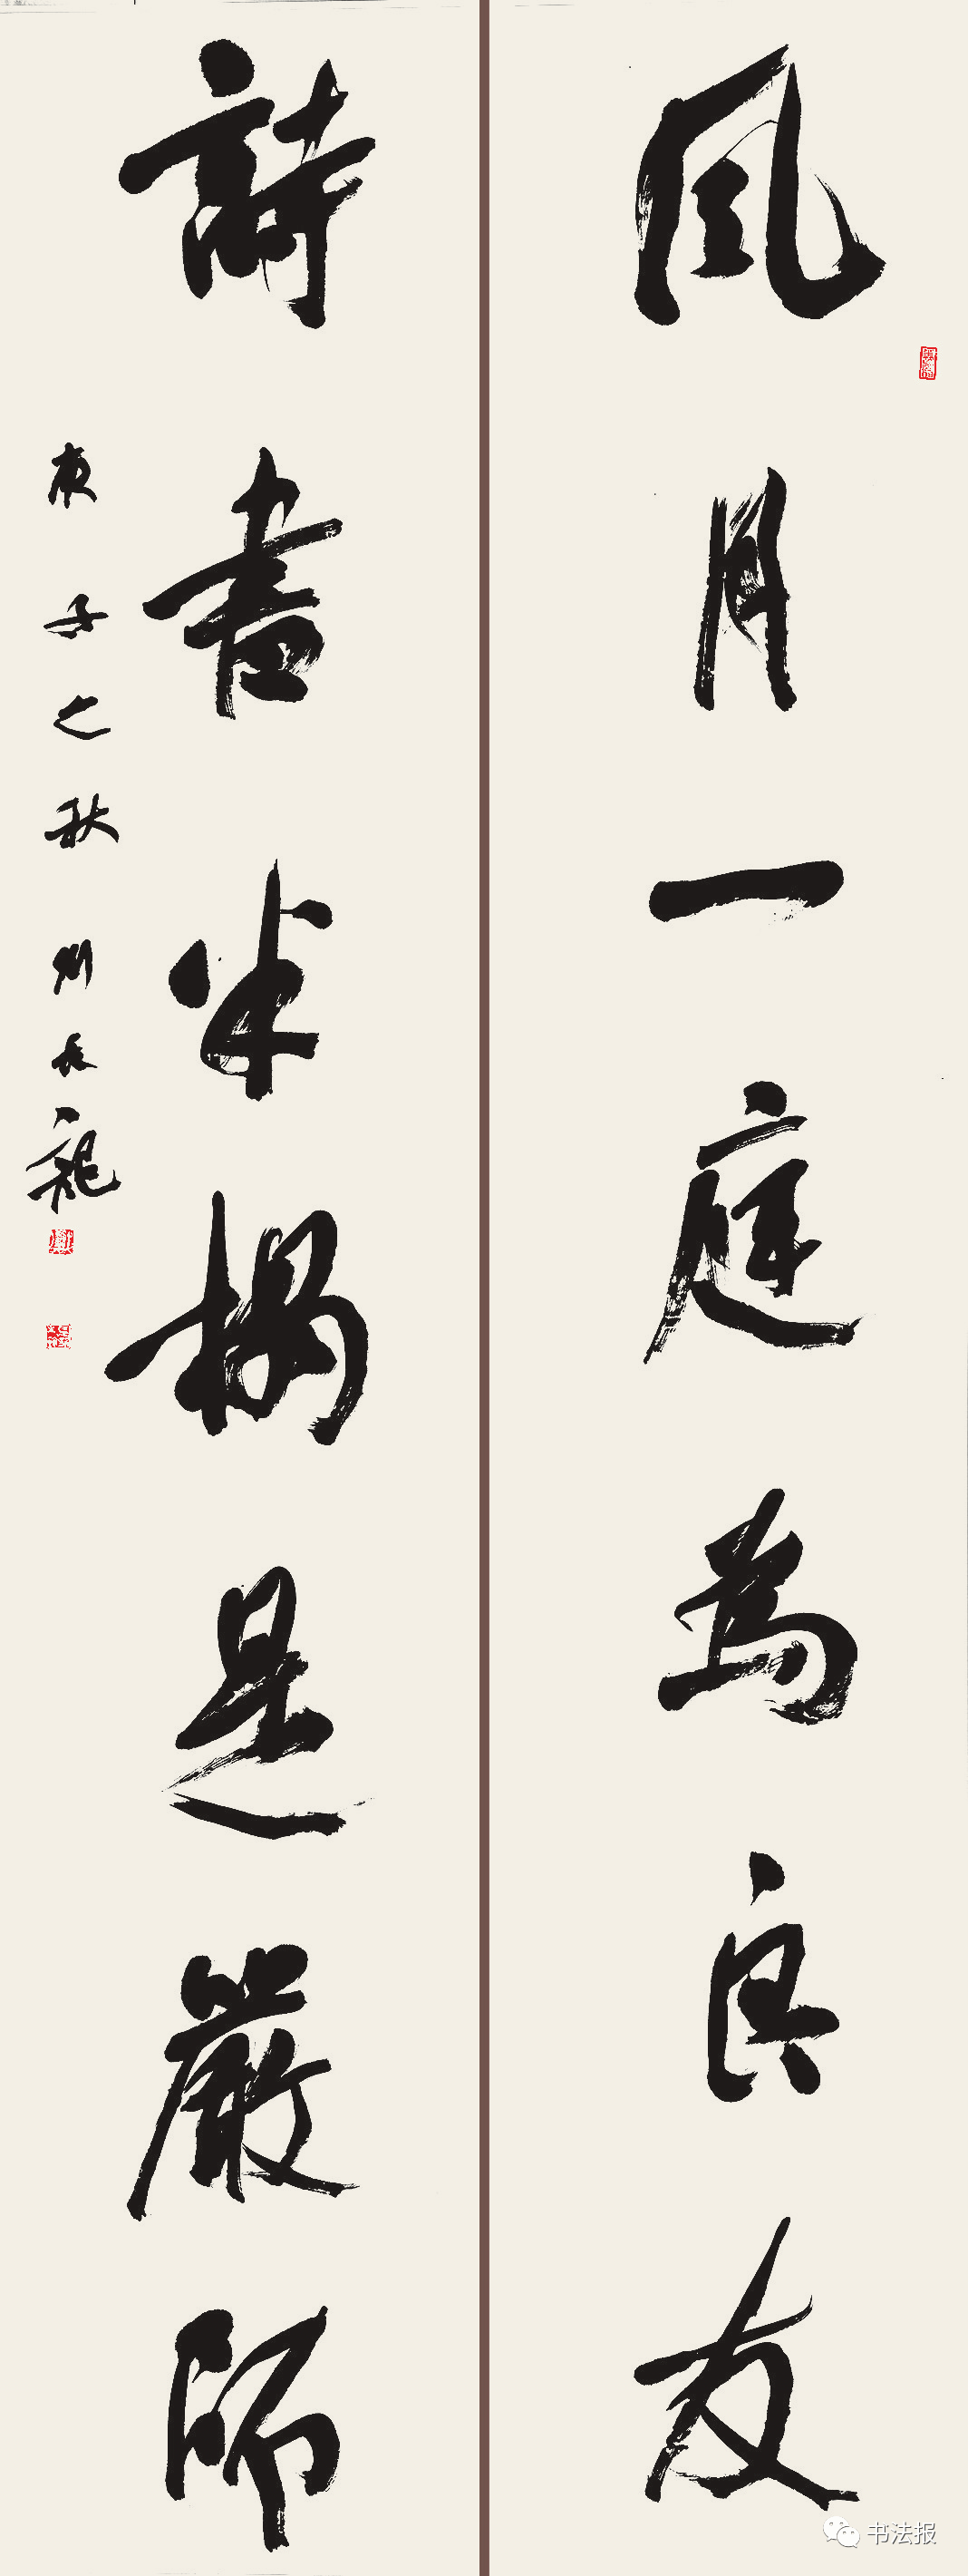 風月一庭為良友
詩書半榻是嚴師
庚子之秋劉長龍
书法报